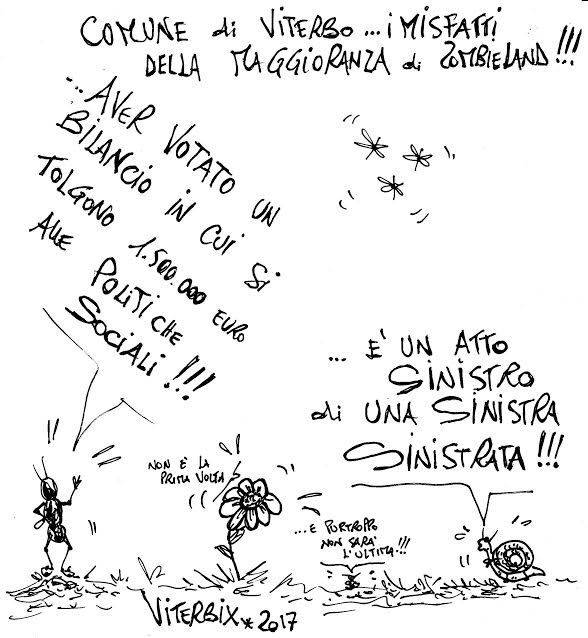 COMUNE di VITERBO...i MISFATTI
DELLA MAGGIORANZA di ZOMBIELAND!!!
...AVER VOTATO UN
BILANCIO IN CUI SI
TOLGONO 1.500.000 EURO
ALLE POLITICHE
SOCIALI!!!
... E' UN ATTO
SINISTRO
di UNA SINISTRA
SINISTRATA!!!
NON È LA
PRIMA VOLTA
...E PURTROPPO
NON SARA'
L'ULTIMA!!!
VITERBIX * 2017